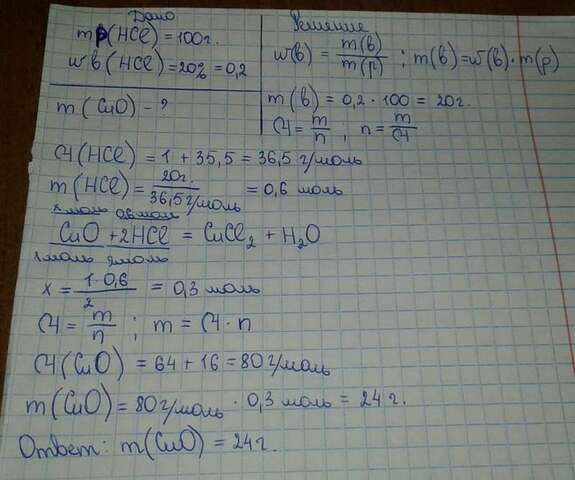 Дано
mp(HCl) = 100г.
wв(HCl) = 20% = 0,2
m(CuO) - ?
Решение
w(в) = m(в)/m(р) ; m(в) = w(в) · m(р)
m(в) = 0,2 · 100 = 20г.
M = m/n ; n = m/M
M(HCl) = 1 + 35,5 = 36,5 г/моль
m(HCl) = 20г./36,5г/моль = 0,6 моль
x моль 0,6 моль
CuO + 2HCl = CuCl₂ + H₂O
1 моль 2 моль
x = 1·0,6/2 = 0,3 моль
M = m/n ; m = M · n
M(CuO) = 64 + 16 = 80г/моль
m(CuO) = 80г/моль · 0,3 моль = 24 г.
Ответ: m(CuO) = 24г.